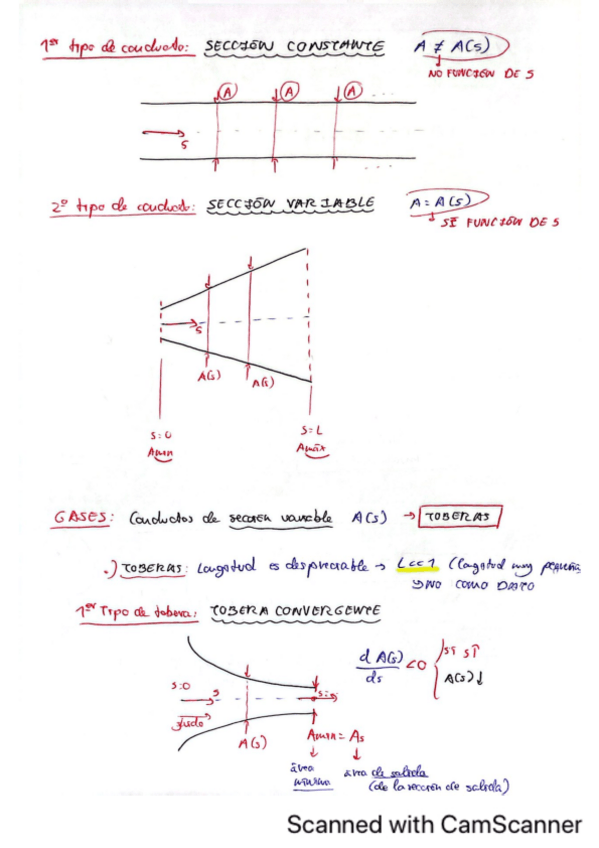 1er tipo de conducto: SECCIÓN CONSTANTE A ≠ A(s)
NO FUNCIÓN DE S
A A A ...
s
...
2º tipo de conducto: SECCIÓN VARIABLE A = A(s)
SÍ FUNCIÓN DE S
s
A(s) A(s)
s=0 s=L
Amin Amáx
GASES: Conductos de sección variable A(s) → TOBERAS
.) TOBERAS: Longitud es despreciable → L<<1 (Longitud muy pequeña
NO COMO DATO
1er Tipo de tobera: TOBERA CONVERGENTE
dA(s)/ds <0 si s↑
A(s)↓
s=0 s
fluido
A(s) Amin = As
área área de salida
mínima (de la sección de salida)
Scanned with CamScanner